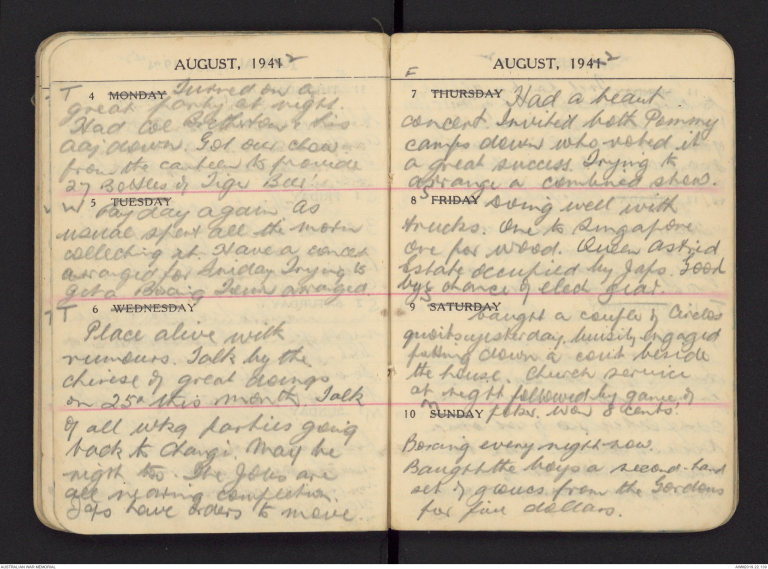 AUGUST, 1941 2
T
4 MONDAY Turned on a
great party at night.
Had Col & his
adj down. Got our chow
from the canteen to provide
27 Bottles of Tiger Beer!
W
5 TUESDAY
Pay day again As
usual spent all the morn
collecting it. Have a concert
arranged for Friday Trying to
get a Boxing Team arranged.
T
6 WEDNESDAY
Place alive with
rumours. Talk by the
chinese of great doings
on 25th this month. Talk
of all wkg parties going
back to Changi. May be
right too. The Jobs are
all nearing completion.
Japs have orders to move.
AUGUST, 1941 2
F
7 THURSDAY Had a beaut
concert. Invited both Pommy
camps down who voted it
a great success. Trying to
arrange a combined show.
S
8 FRIDAY Doing well with
trucks. One to Singapore
One for wood. Queen Astrid
Estate occupied by Japs. Good
chance of elect gear.
S
9 SATURDAY
Bought a couple of Circlos
quoits yesterday, busily engaged
putting down a court beside
the house. Church service
at night followed by game of
10 SUNDAY poker. Won 8 cents!
Boxing every night now.
Bought the boys a second-hand
set of gloves from the Gordons
for five dollars.
AUSTRALIAN WAR MEMORIAL